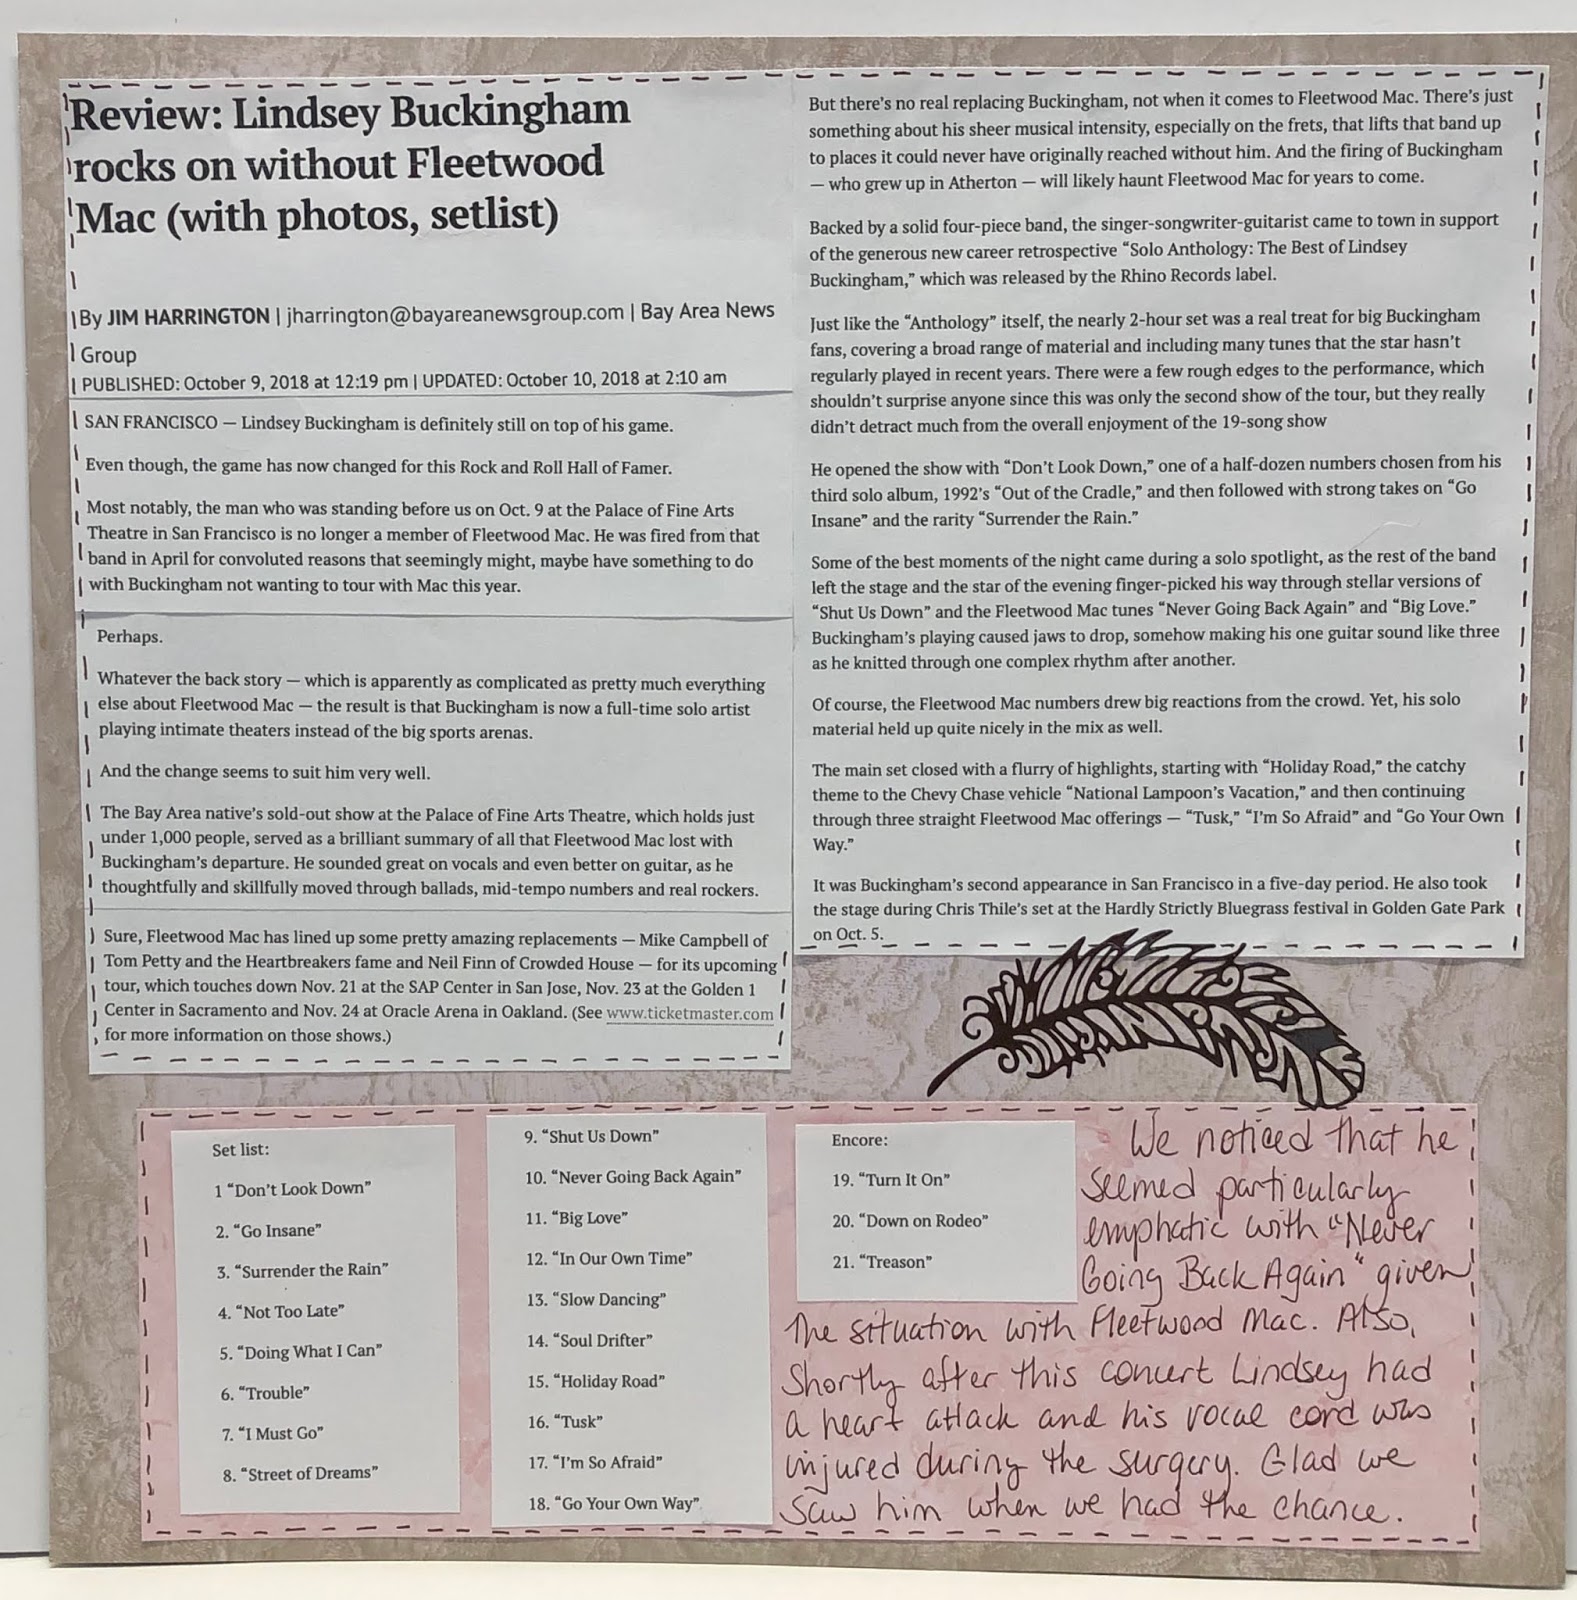 Review: Lindsey Buckingham
rocks on without Fleetwood
Mac (with photos, setlist)
By JIM HARRINGTON | jharrington@bayareanewsgroup.com | Bay Area News
Group
PUBLISHED: October 9, 2018 at 12:19 pm | UPDATED: October 10, 2018 at 2:10 am
SAN FRANCISCO — Lindsey Buckingham is definitely still on top of his game.
Even though, the game has now changed for this Rock and Roll Hall of Famer.
Most notably, the man who was standing before us on Oct. 9 at the Palace of Fine Arts
Theatre in San Francisco is no longer a member of Fleetwood Mac. He was fired from that
band in April for convoluted reasons that seemingly might, maybe have something to do
with Buckingham not wanting to tour with Mac this year.
Perhaps.
Whatever the back story — which is apparently as complicated as pretty much everything
else about Fleetwood Mac — the result is that Buckingham is now a full-time solo artist
playing intimate theaters instead of the big sports arenas.
And the change seems to suit him very well.
The Bay Area native's sold-out show at the Palace of Fine Arts Theatre, which holds just
under 1,000 people, served as a brilliant summary of all that Fleetwood Mac lost with
Buckingham's departure. He sounded great on vocals and even better on guitar, as he
thoughtfully and skillfully moved through ballads, mid-tempo numbers and real rockers.
Sure, Fleetwood Mac has lined up some pretty amazing replacements — Mike Campbell of
Tom Petty and the Heartbreakers fame and Neil Finn of Crowded House — for its upcoming
tour, which touches down Nov. 21 at the SAP Center in San Jose, Nov. 23 at the Golden 1
Center in Sacramento and Nov. 24 at Oracle Arena in Oakland. (See www.ticketmaster.com
for more information on those shows.)
But there's no real replacing Buckingham, not when it comes to Fleetwood Mac. There's just
something about his sheer musical intensity, especially on the frets, that lifts that band up
to places it could never have originally reached without him. And the firing of Buckingham
— who grew up in Atherton — will likely haunt Fleetwood Mac for years to come.
Backed by a solid four-piece band, the singer-songwriter-guitarist came to town in support
of the generous new career retrospective “Solo Anthology: The Best of Lindsey
Buckingham,” which was released by the Rhino Records label.
Just like the “Anthology” itself, the nearly 2-hour set was a real treat for big Buckingham
fans, covering a broad range of material and including many tunes that the star hasn't
regularly played in recent years. There were a few rough edges to the performance, which
shouldn't surprise anyone since this was only the second show of the tour, but they really
didn't detract much from the overall enjoyment of the 19-song show
He opened the show with “Don't Look Down,” one of a half-dozen numbers chosen from his
third solo album, 1992's “Out of the Cradle,” and then followed with strong takes on “Go
Insane” and the rarity “Surrender the Rain.”
Some of the best moments of the night came during a solo spotlight, as the rest of the band
left the stage and the star of the evening finger-picked his way through stellar versions of
“Shut Us Down” and the Fleetwood Mac tunes “Never Going Back Again” and “Big Love.”
Buckingham's playing caused jaws to drop, somehow making his one guitar sound like three
as he knitted through one complex rhythm after another.
Of course, the Fleetwood Mac numbers drew big reactions from the crowd. Yet, his solo
material held up quite nicely in the mix as well.
The main set closed with a flurry of highlights, starting with “Holiday Road,” the catchy
theme to the Chevy Chase vehicle “National Lampoon's Vacation,” and then continuing
through three straight Fleetwood Mac offerings — “Tusk,” “I'm So Afraid” and “Go Your Own
Way.”
It was Buckingham's second appearance in San Francisco in a five-day period. He also took
the stage during Chris Thile's set at the Hardly Strictly Bluegrass festival in Golden Gate Park
on Oct. 5.
Set list:
1 “Don't Look Down”
2. “Go Insane”
3. “Surrender the Rain”
4. “Not Too Late”
5. “Doing What I Can”
6. “Trouble”
7. “I Must Go”
8. “Street of Dreams”
9. “Shut Us Down”
10. “Never Going Back Again”
11. “Big Love”
12. “In Our Own Time”
13. “Slow Dancing”
14. “Soul Drifter”
15. “Holiday Road”
16. “Tusk”
17. “I'm So Afraid”
18. “Go Your Own Way”
Encore:
19. “Turn It On”
20. “Down on Rodeo”
21. “Treason”
We noticed that he
seemed particularly
emphatic with “Never
Going Back Again“ given
the situation with Fleetwood Mac. Also,
shortly after this concert Lindsey had
a heart attack and his vocal cord was
injured during the surgery. Glad we
saw him when we had the chance.